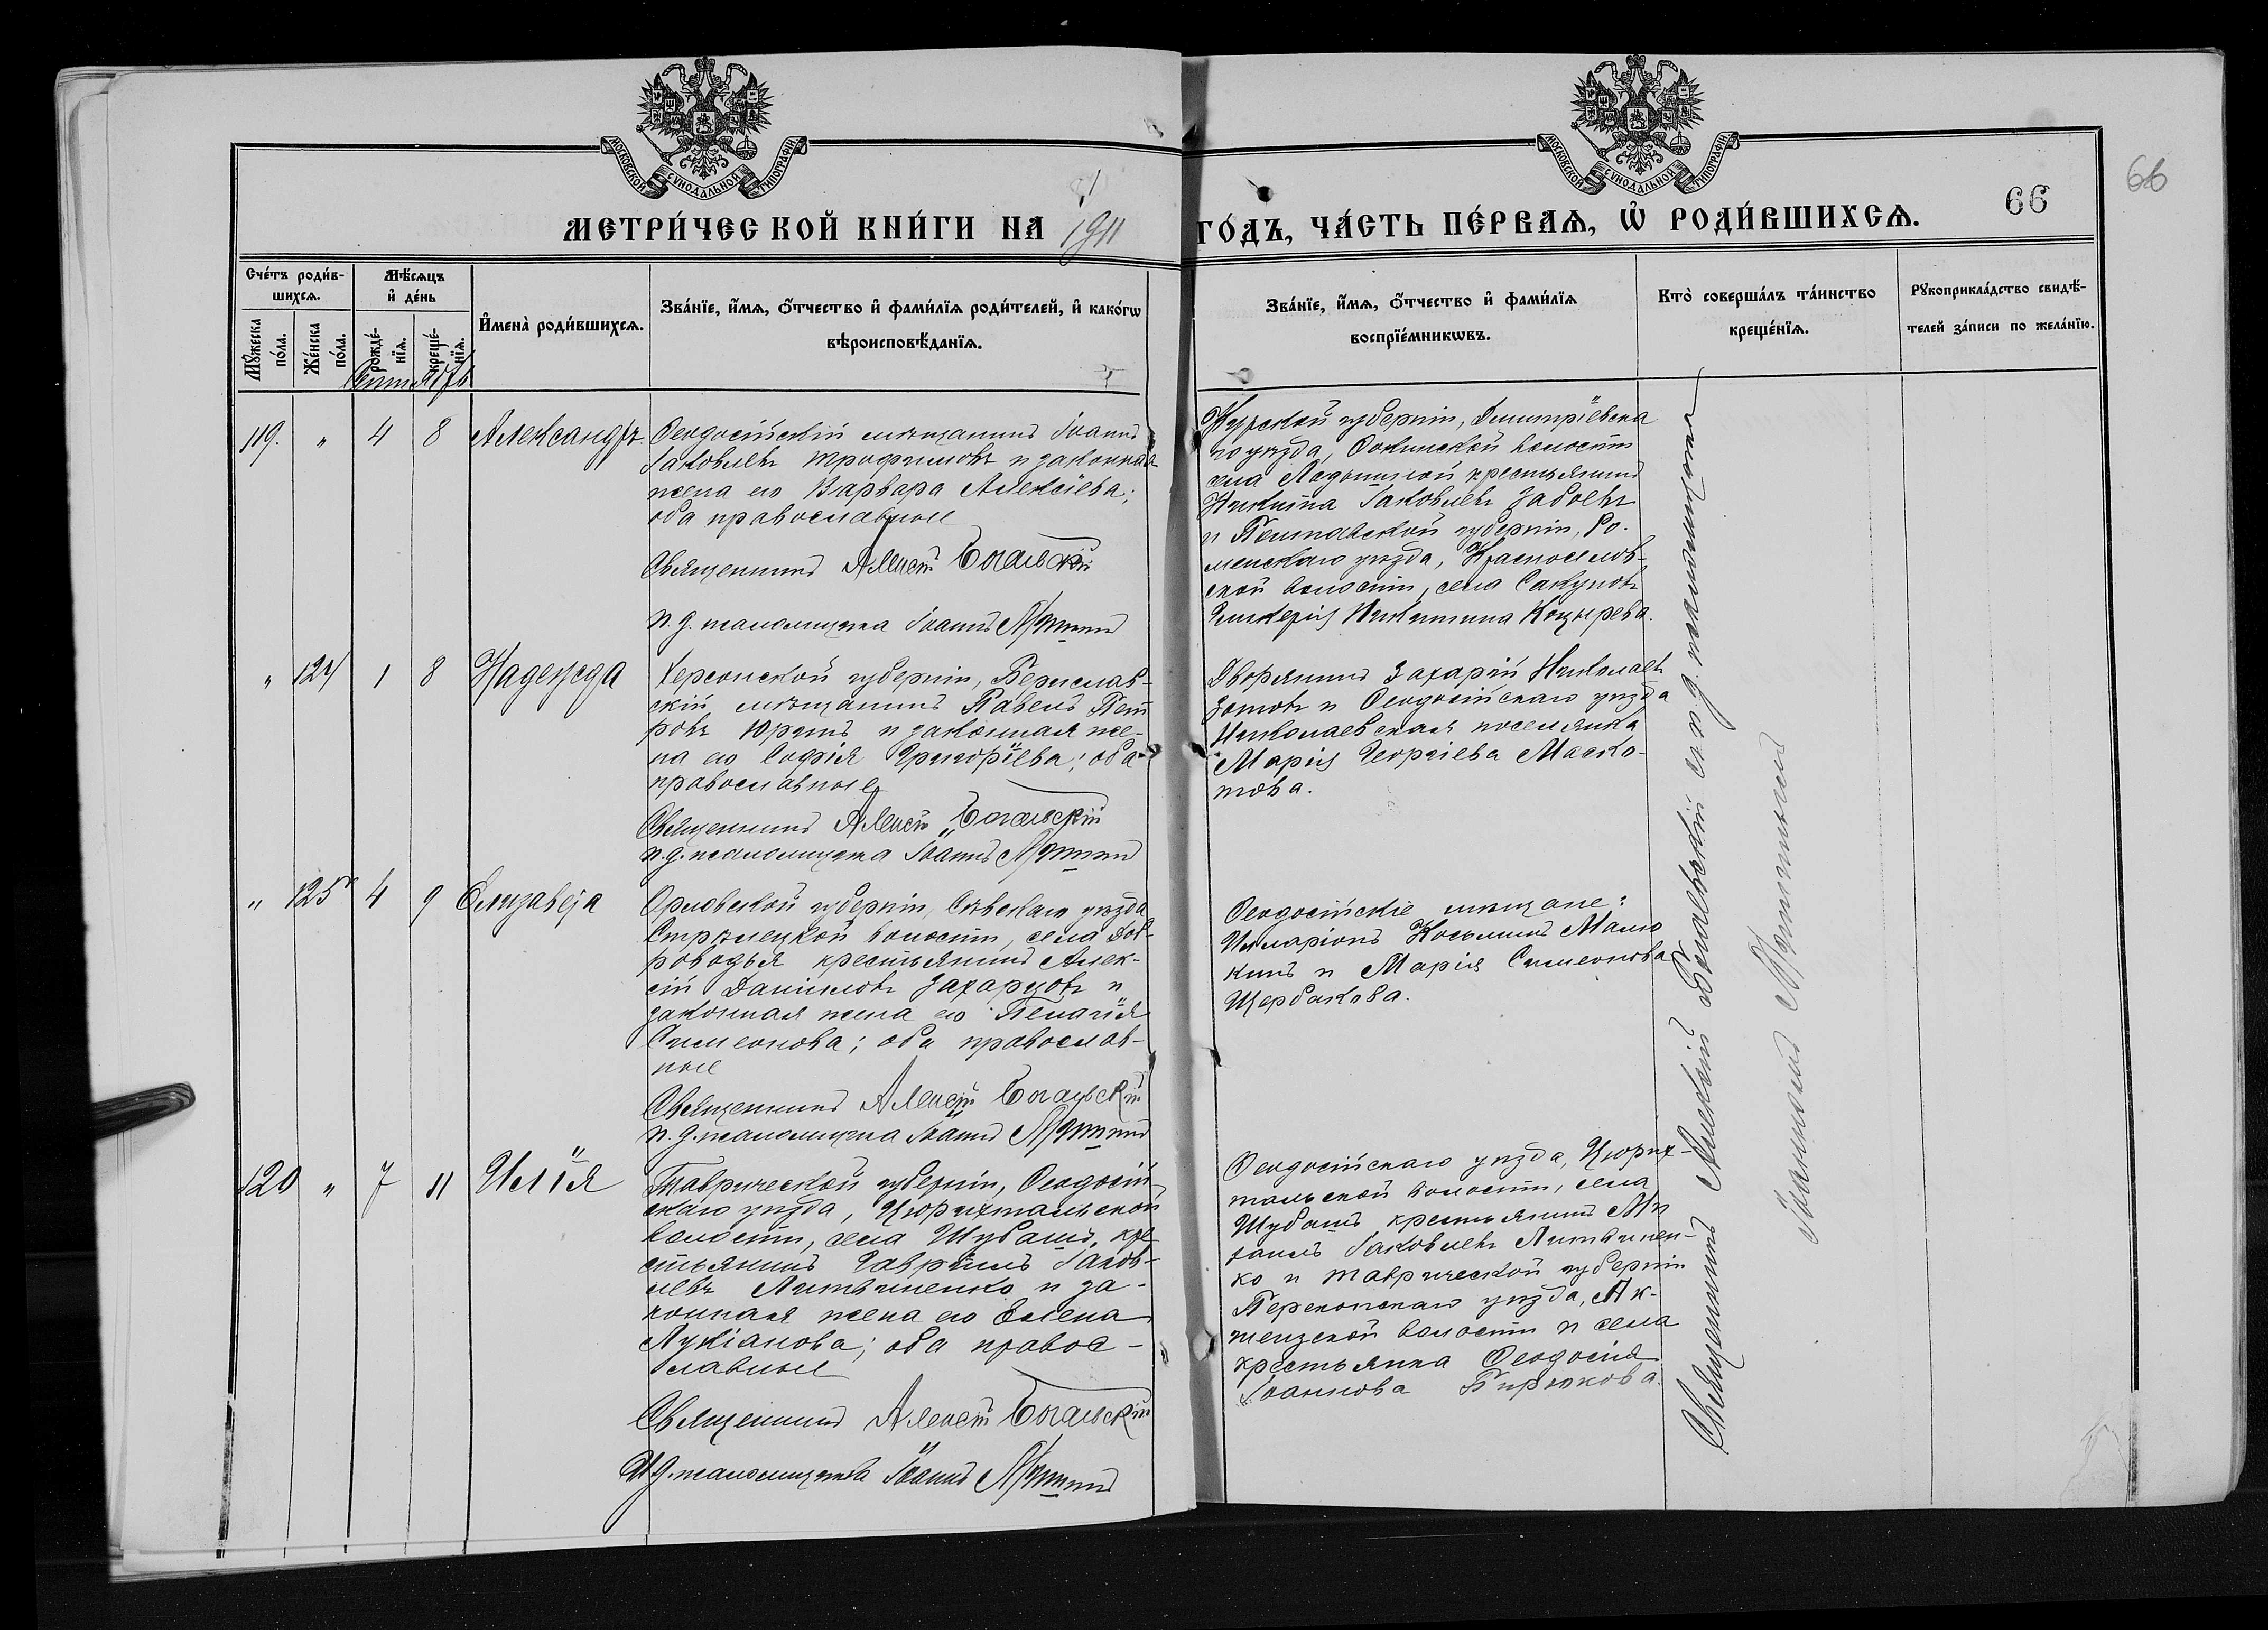 МОСКОВСКОЙ СУНОДАЛЬНОЙ ТИПОГРАФІИ
МОСКОВСКОЙ СУНОДАЛЬНОЙ ТИПОГРАФІИ
66
66
МЕТРИ́ЧЕСКОЙ КНИ́ГИ НА 1911 ГО́ДЪ, ЧА́СТЬ ПЕ́РВАѦ, Ѡ҆ РОДИ́ВШИХСѦ.
Сче́тъ роди́в-
шихсѧ.
Мꙋ́жеска по́ла.
Же́нска по́ла.
Мѣ́сѧцъ
и҆ де́нь
рожде́-
нїѧ.
креще́-
нїѧ.
Сентябрь
И҆мена̀ роди́вшихсѧ.
Зва́нїе, и҆́мѧ, о҆́тчество и҆ фами́лїѧ роди́телей, и҆ како́гѡ
вѣроисповѣ́данїѧ.
Зва́нїе, и҆́мѧ, о҆́тчество и҆ фами́лїѧ
воспрїе́мникѡвъ.
Кто̀ соверша́лъ та́инство
креще́нїѧ.
Рꙋкоприкла́дство свидѣ́-
телей за́писи по жела́нїю.
119. " 4 8 Александръ
Ѳеодосійскій мѣщанинъ Іоаннъ
Іаковлевъ Трофимовъ и законная
жена его Варвара Алексіева;
оба православные
Священникъ Алексій Бѣгальскій
и. д. псаломщика Іоаннъ
Курской губерніи, Димитріевска
го уѣзда, волости
села крестьянинъ
Никита Іаковлевъ Забоевъ
и Полтавской губерніи, Ро-
менскаго уѣзда,
ской волости, села
Гликерія Никитина Козырева.
" 124 1 8 Надежда
Херсонской губерніи, Берислав-
скій мѣщанинъ Павелъ Пет
ровъ Юринъ и законная же-
на его Софія Григоріева; оба
православные
Священникъ Алексій Бѣгальскій
и. д. псаломщика Іоаннъ
Дворянинъ Захарій Николаевъ
Зотовъ и Ѳеодосійскаго уѣзда
Николаевская поселянка
Марія Георгіева Маско-
това.
" 125 4 9 Елизавеѳа
Орловской губерніи, Сѣвскаго уѣзда
Стрѣлецкой волости, села Доб-
роводья крестьянинъ Алек-
сій Даніиловъ Захарцовъ и
законная жена его Пелагія
Симеонова; оба православ-
ные
Священникъ Алексій Бѣгальскій
и. д. псаломщика Іоаннъ
Ѳеодосійскіе мѣщане:
Илларіонъ Косьминъ Малю
кинъ и Марія Симеонова
Щербакова.
120 " 7 11 Илія
Таврической губерніи, Ѳеодосій
скаго уѣзда, Цюрихтальской
волости, села Шубашъ, кре
стьянинъ Гавріилъ Іаков-
левъ Литвиненко и за-
конная жена его Елена
Лукіанова; оба правос-
лавные
Священникъ Алексій Бѣгальскій
И. д. псаломщика Іоаннъ
Ѳеодосійскаго уѣзда, Цюрих-
тальской волости, села
Шубашъ крестьянинъ Ми
хаилъ Іаковлевъ Литвинен-
ко и Таврической губерніи
Перекопскаго уѣзда, Ак-
шеизской волости и села
крестьянка Ѳеодосія
Іоаннова Бирюкова.
Священникъ Алексій Бѣгальскій съ и. д. псаломщика
Іоанномъ